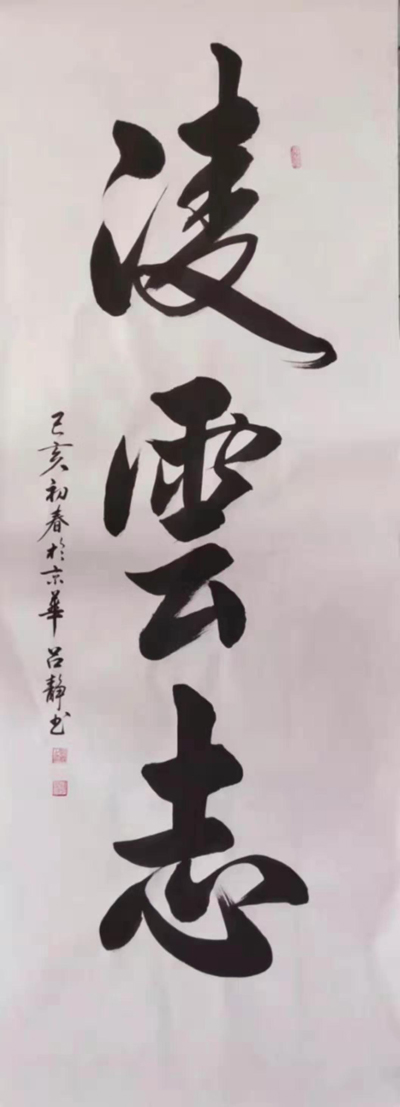 凌雲志
己亥初春於京華呂靜书